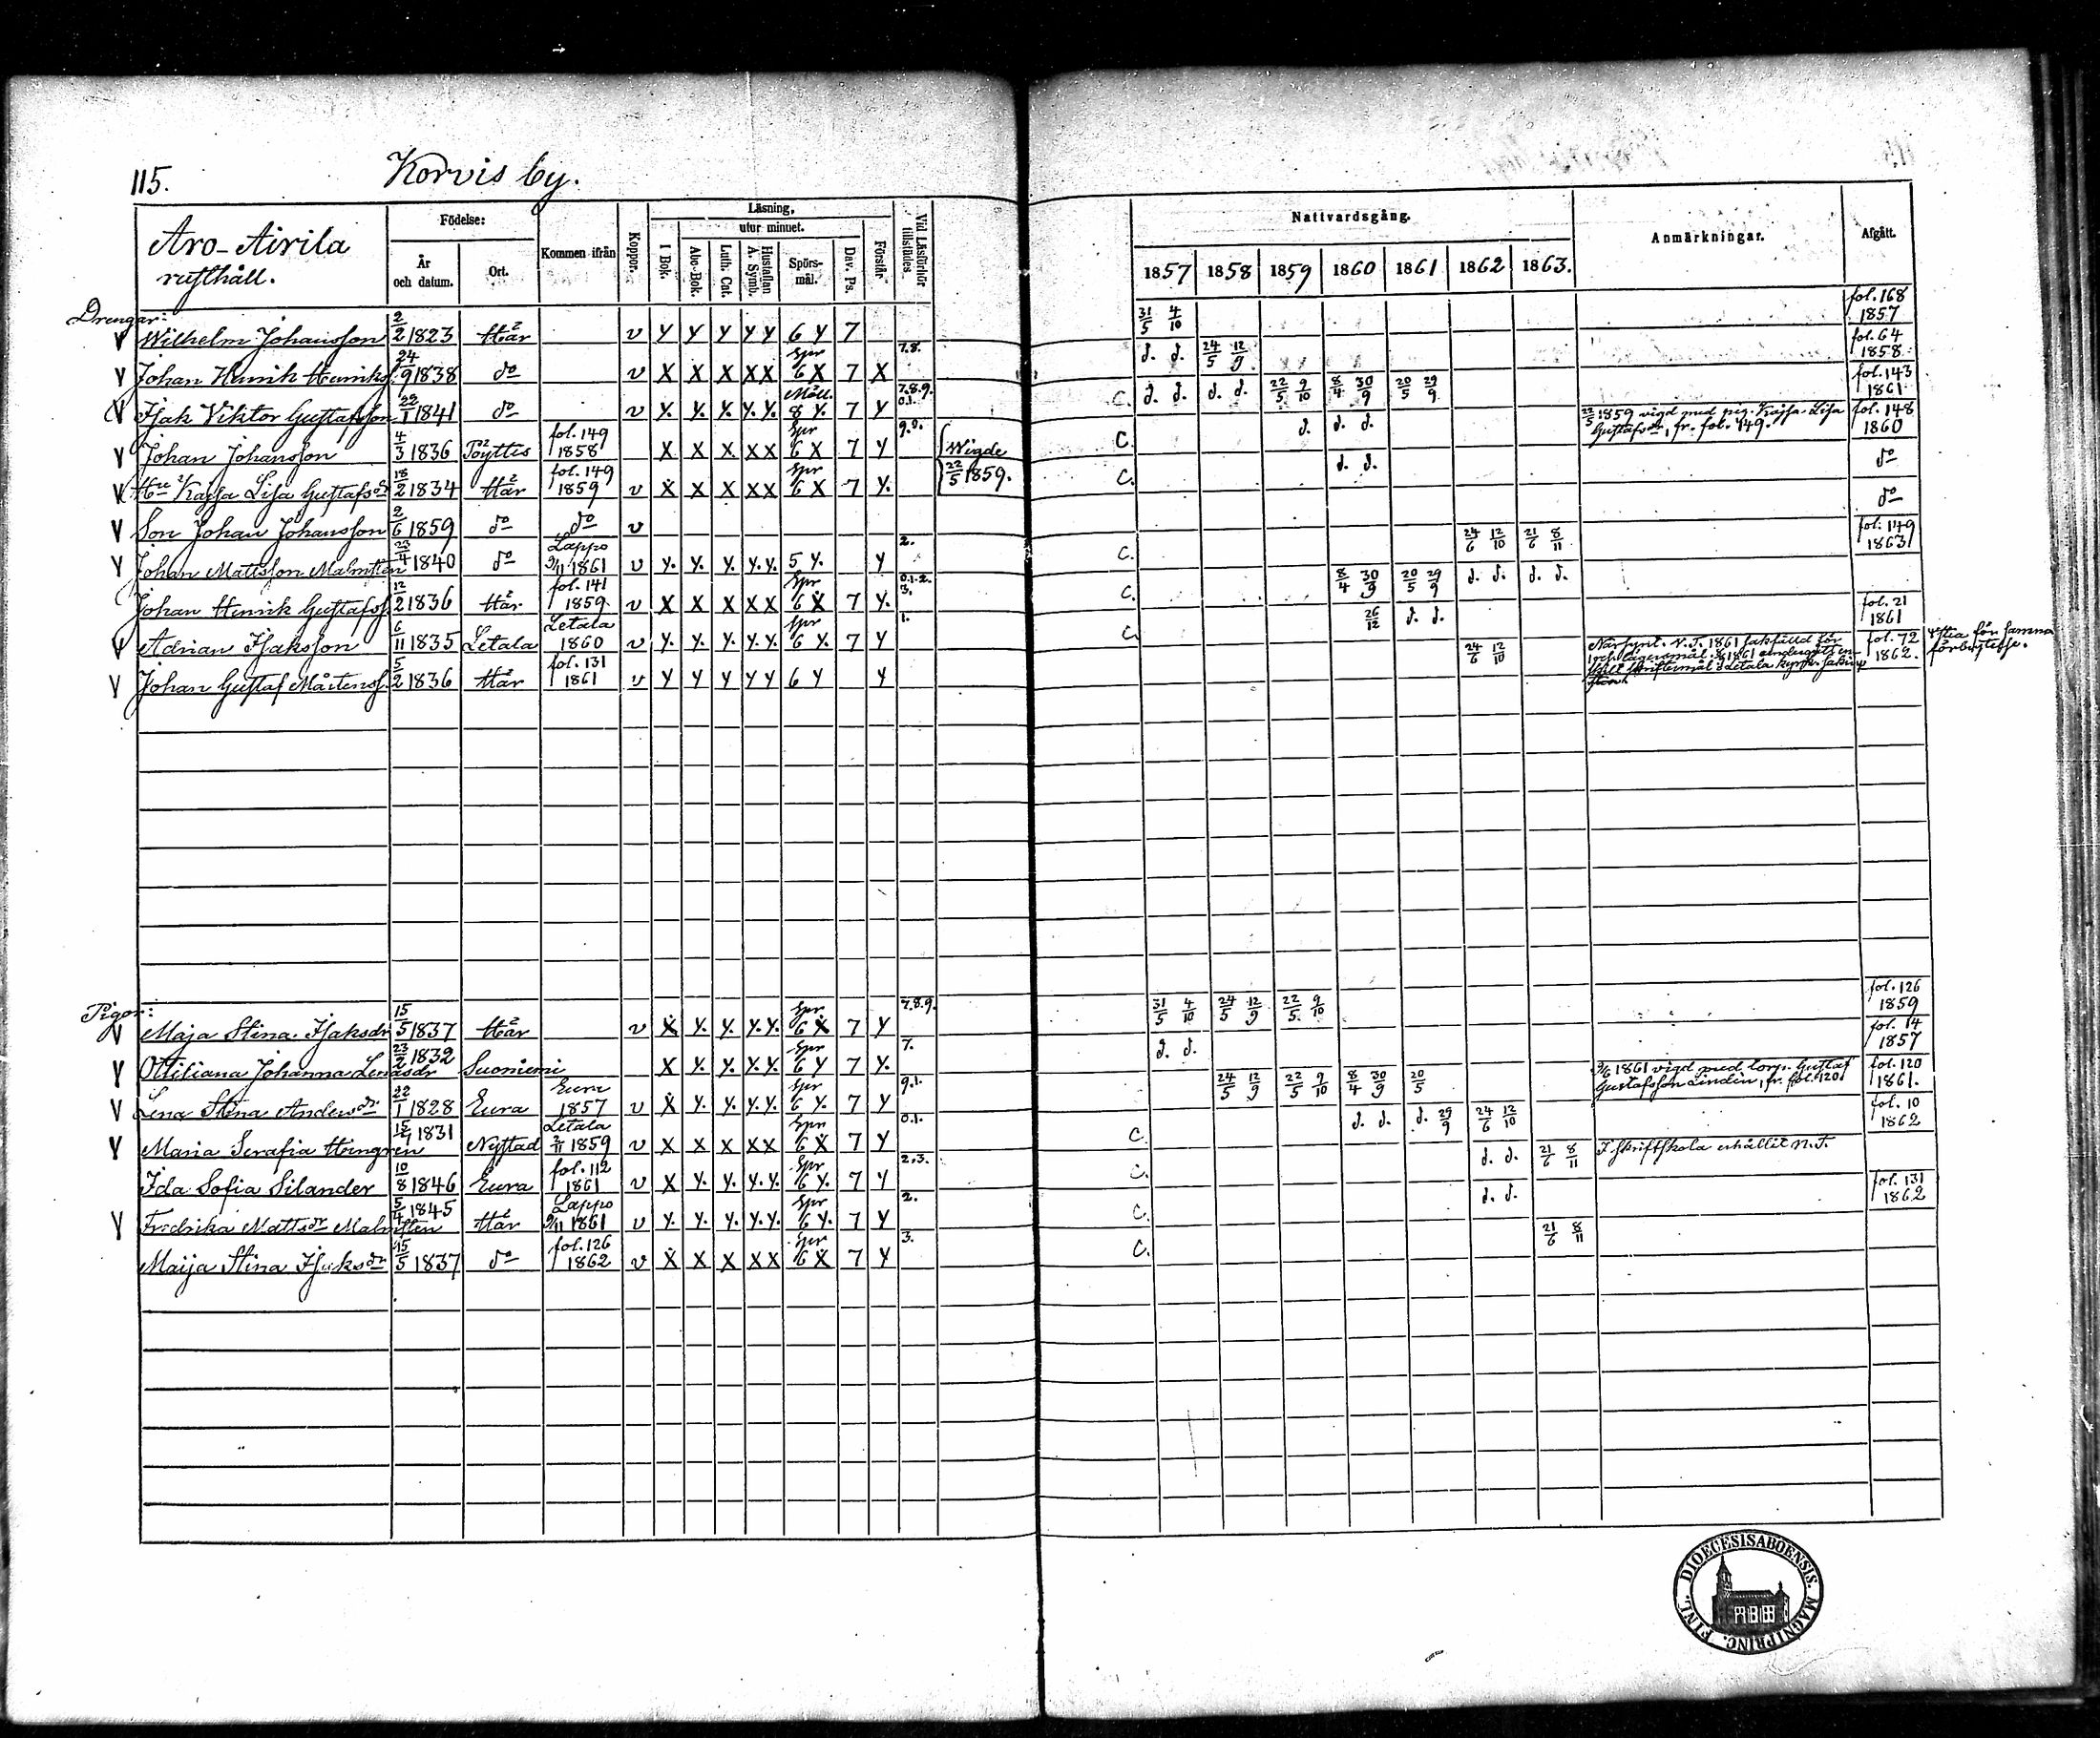 115.
Korvis by.
Aro-Airila
rusthåll.
Födelse:
År
och datum.
Ort.
Kommen ifrån
Koppor.
Läsning,
utur minnet.
I Bok.
Abc-Bok.
Luth. Cat.
Hustaflan
A. Symb.
Spörs-
mål.
Dav. Ps.
Förstår
Vid Läsförhör
tillstädes
Nattvardsgång.
1857 1858 1859 1860 1861 1862 1863.
Anmärkningar.
Afgått.
Drengar:
V Wilhelm Johansson 2/2 1823 Här v Y Y Y Y Y 6 Y 7 31/5 4/10 fol. 168 1857
V Johan Henrik Henriks. 24/9 1838 do v X X X X X Spr 6 X 7 X 7.8. d. d. 24/5 12/9 fol. 64 1858
V Isak Viktor Gustafsson 22/1 1841 do v Y. Y. Y. Y. Y. Måtl. 8 Y. 7 Y 7.8.9. 0.1. C. d. d. d. d. 22/5 9/10 8/4 30/9 20/5 29/9 fol. 143 1861
V Johan Johansson 4/3 1836 Pöyttis fol. 149 1858 X X X X X Spr 6 X 7 Y 9.0. Wigde C. d. d. d. 22/5 1859 vigd med pig. Kajsa Lisa Gustafsdr, fr. fol. 149. fol. 148 1860
V Hu Kajsa Lisa Gustafsdr 18/2 1834 Här fol. 149 1859 v X X X X X Spr 6 X 7 Y. 22/5 1859. C. d. d. do
V Son Johan Johansson 2/6 1859 do do v do
V Johan Mattsson Malmsten 23/4 1840 do Lappo 9/11 1861 v Y. Y. Y. Y. Y. 5 Y. Y 2. C. 24/6 12/10 21/6 8/11 fol. 149 1863
Johan Henrik Gustafss. 12/2 1836 Här fol. 141 1859 v X X X X X Spr 6 X 7 Y. 0.1.2. 3. C. 8/4 30/9 20/5 29/9 d. d. d. d.
V Adrian Isaksson 6/11 1835 Letala Letala 1860 v Y. Y. Y. Y. Y. Spr 6 Y. 7 Y 1. C. 26/12 d. d. fol. 21 1861
V Johan Gustaf Mårtenss. 5/2 1836 Här fol. 131 1861 v Y Y Y Y Y 6 Y Y 24/6 12/10 N. T. 1861 sakfälld för lägersmål 1861 undergått enskilt skriftermål i Letala kyrk. fol. 72 1862. för samma förbrytelse.
Pigor:
V Maja Stina Isaksdr 15/5 1837 Här v X Y. Y. Y. Y. Spr 6 X 7 Y 7.8.9. 31/5 4/10 24/5 12/9 22/5 9/10 fol. 126 1859
V Ottiliana Johanna Lenasdr 23/2 1832 Suoniemi X Y. Y. Y. Y. Spr 6 Y 7 Y. 7. d. d. fol. 14 1857
V Lena Stina Andersdr 22/1 1828 Eura Eura 1857 v X Y. Y. Y. Y. Spr 6 Y. 7 Y 9.1. 24/5 12/9 22/5 9/10 8/4 30/9 20/5 9/6 1861 vigd med torp. Gustaf Gustafsson Lindén, fr. fol. 120 fol. 120 1861.
V Maria Serafia Hemgren 15/7 1831 Nystad Letala 2/11 1859 v X X X X X Spr 6 X 7 Y 0.1. C. d. d. d. 29/9 24/6 12/10 fol. 10 1862
Ida Sofia Silander 10/8 1846 Eura fol. 112 1861 v X Y. Y. Y. Y. Spr 6 Y. 7 Y 2.3. C. d. d. 21/6 8/11 I skriftskola erhållit N. T.
V Fredrika Mattsdr Malmsten 5/4 1845 Här Lappo 9/11 1861 v Y. Y. Y. Y. Y. Spr 6 Y. 7 Y 2. C. d. d. fol. 131 1862
Maija Stina Isaksdr 15/5 1837 do fol. 126 1862 v X X X X X Spr 6 X 7 Y 3. C. 21/6 8/11
DIOECESIS ABOENSIS. MAGNI PRINC. FINL.